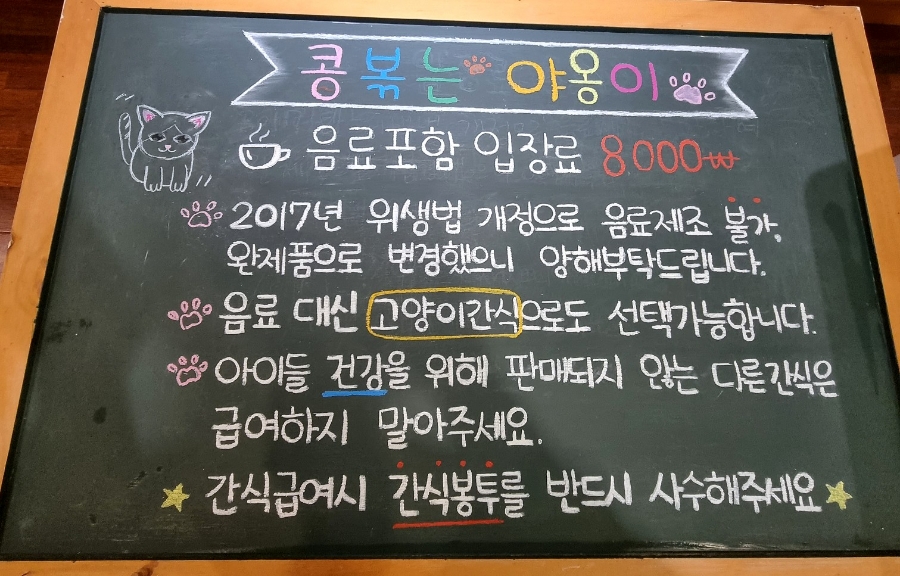 콩볶는 야옹이
음료포함 입장료 8000₩
2017년 위생법 개정으로 음료제조 불가,
완제품으로 변경했으니 양해부탁드립니다.
음료 대신 고양이간식으로도 선택가능합니다.
아이들 건강을 위해 판매되지 않는 다른간식은
급여하지 말아주세요.
간식급여시 간식봉투를 반드시 사수해주세요